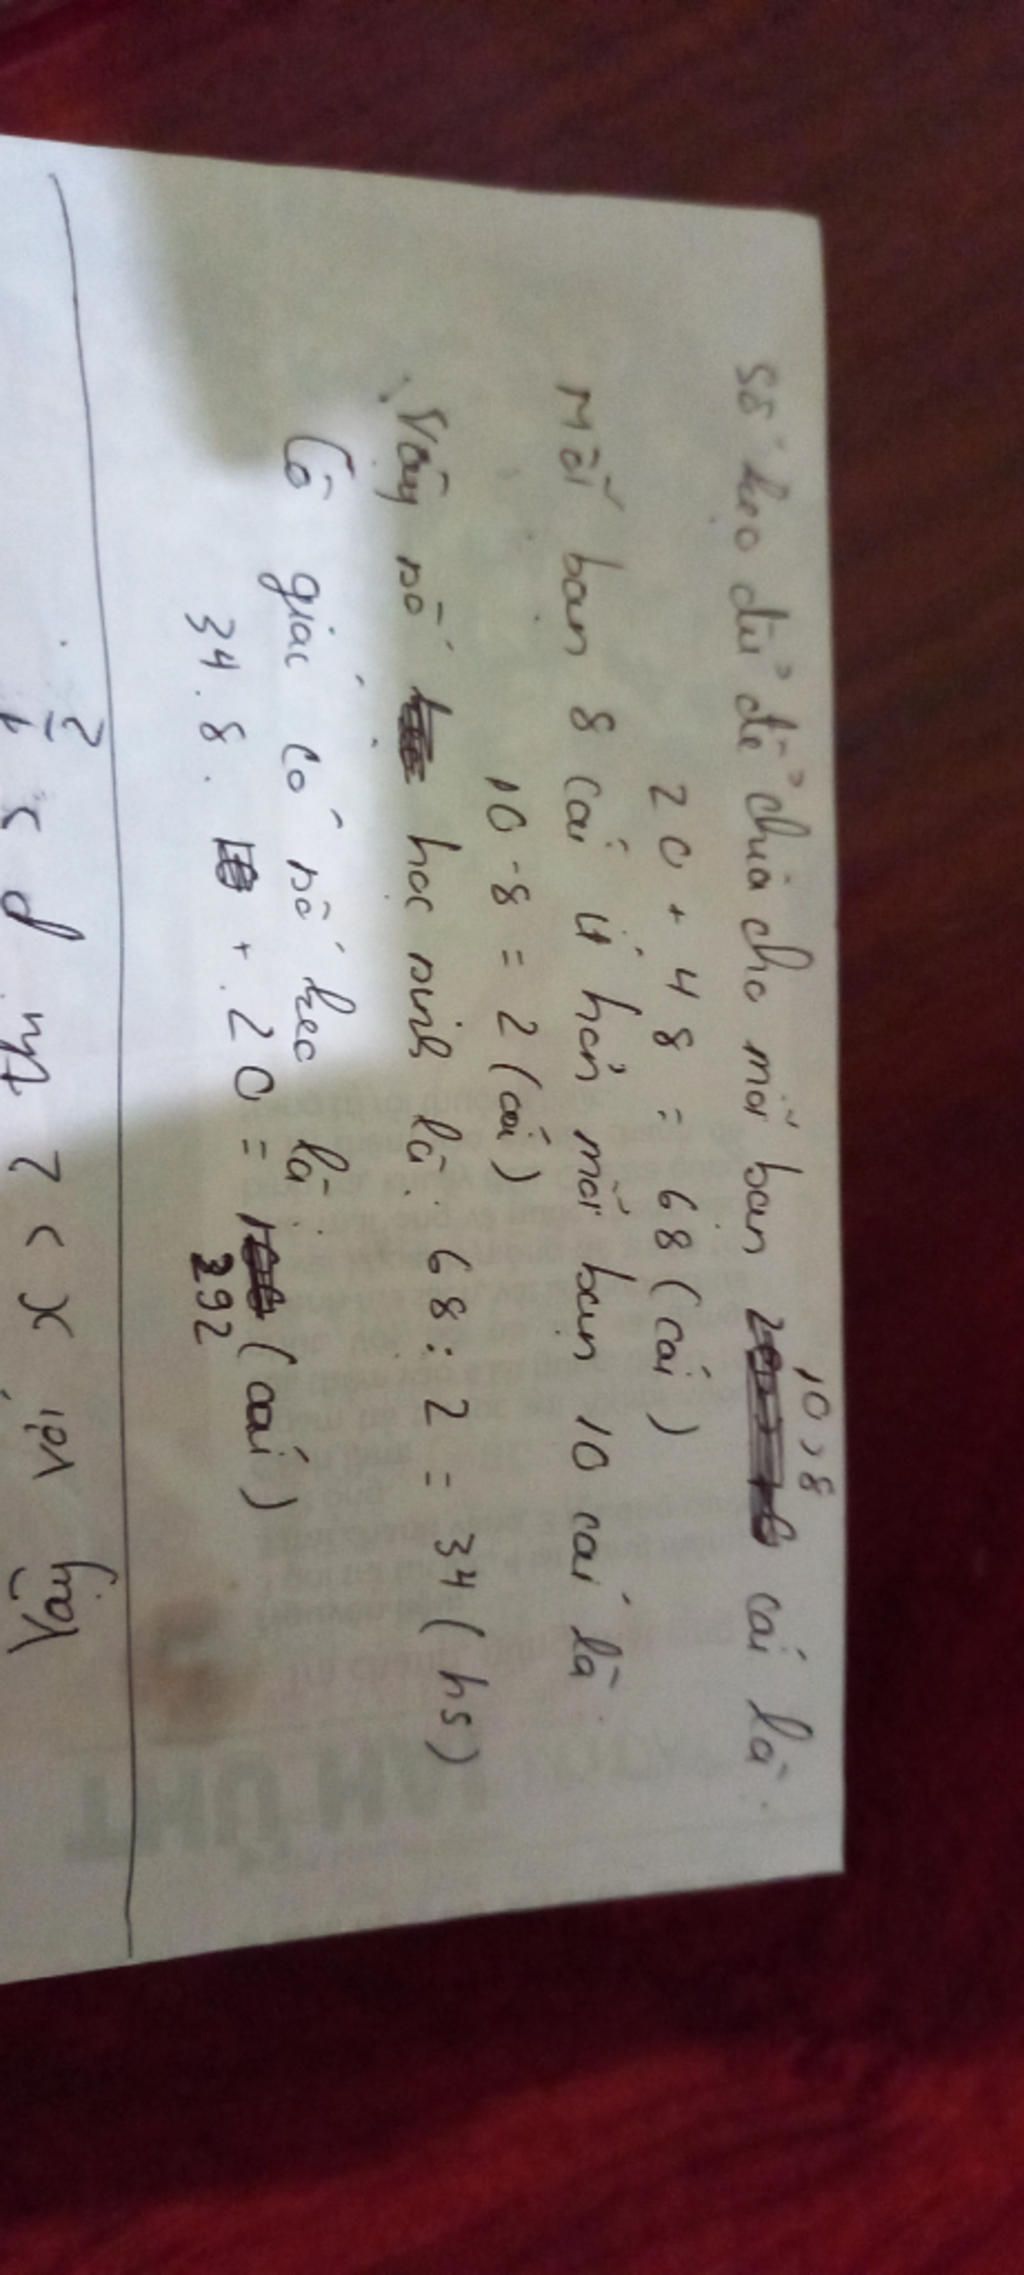 Số kẹo đủ để chia cho mỗi bạn 10 > 8 cái là:
20 + 48 = 68 (cái)
Mỗi bạn 8 cái ít hơn mỗi bạn 10 cái là
10 - 8 = 2 (cái)
Vậy số học sinh là: 68 : 2 = 34 (hs)
Cô giáo có số kẹo là:
34 . 8 + 20 = 292 (cái)
1/2
Vậy với x > 2 thì P >